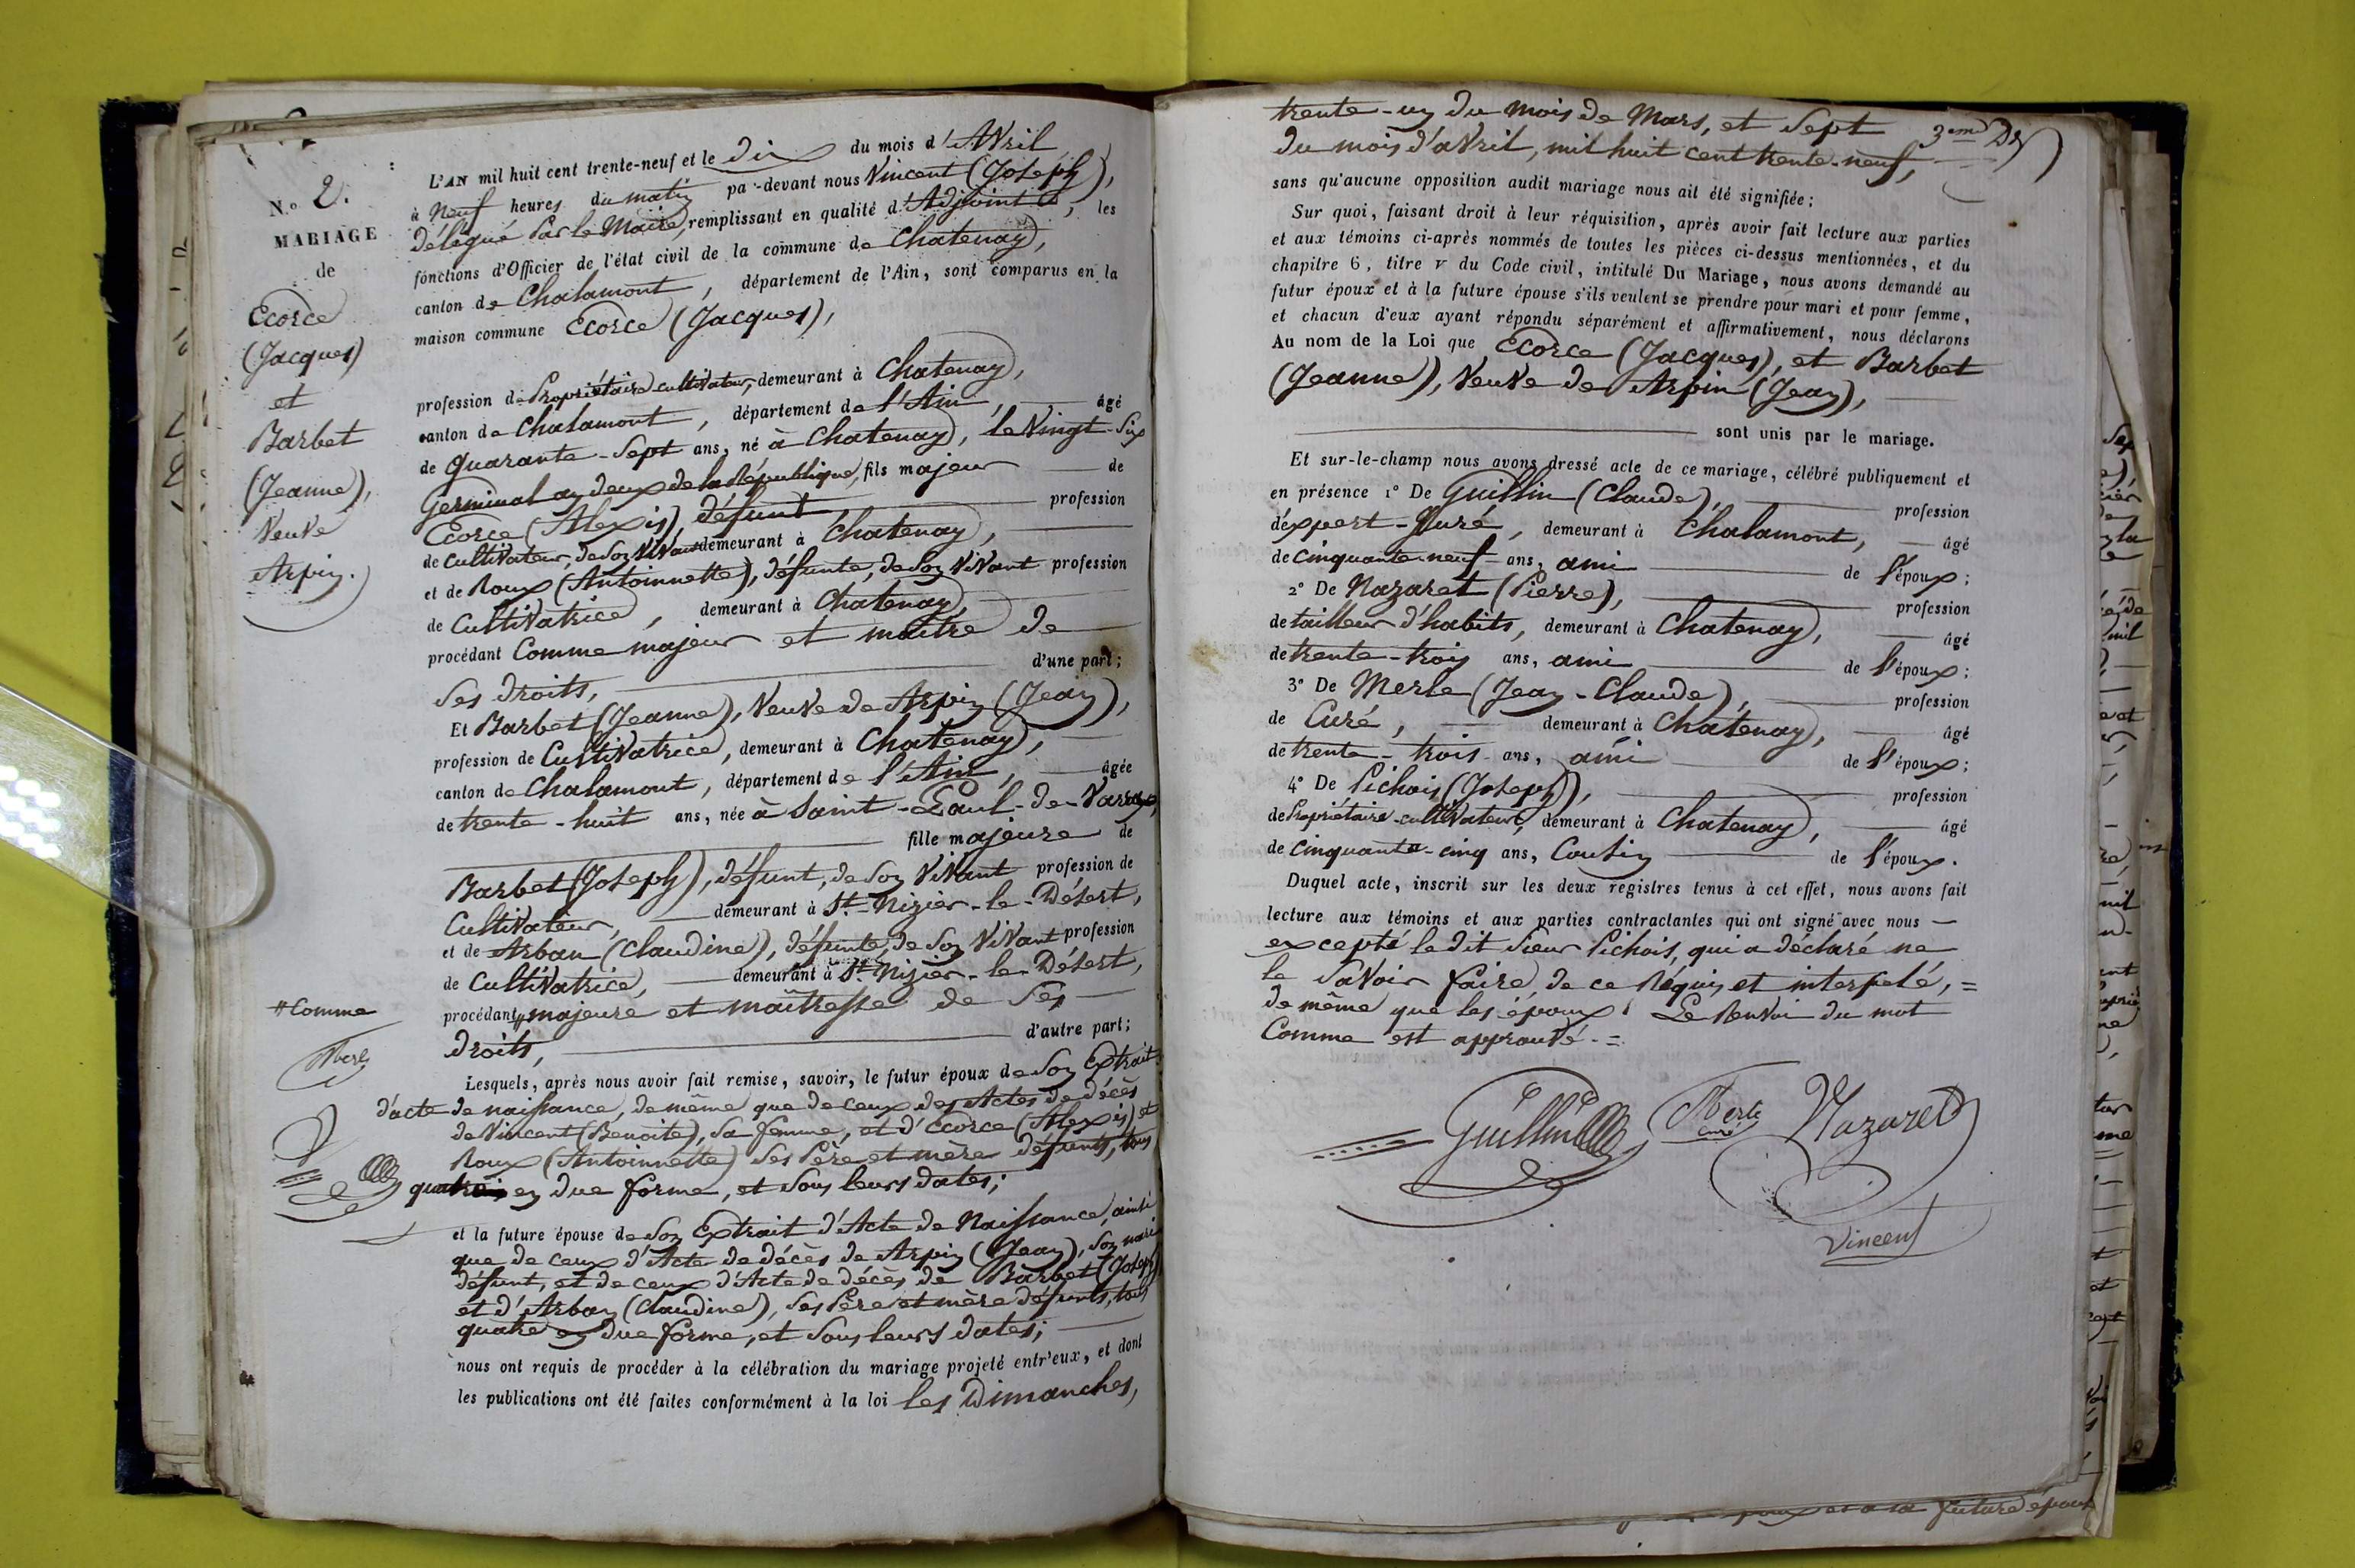 N.° 2.
MARIAGE
de
Ecorce
(Jacques)
et
Barbet
(Jeanne),
Veuve
Arpin.
L'AN mil huit cent trente-neuf et le dix du mois d'Avril
à Neuf heures du matin pa-devant nous Vincent (Joseph),
délégué par le Maire, remplissant en qualité d'Adjoint, les
fonctions d'Officier de l'état civil de la commune de Chatenay,
canton de Chalamont, département de l'Ain, sont comparus en la
maison commune Ecorce (Jacques),
profession de Propriétaire cultivateur, demeurant à Chatenay,
canton de Chalamont, département de l'Ain, âgé
de Quarante-Sept ans, né à Chatenay, le Vingt-Six
Germinal an deux de la République, fils majeur de
Ecorce (Alexis), défunt profession
de Cultivateur, de son vivant demeurant à Chatenay,
et de Roux (Antoinnette), défunte, de son vivant profession
de Cultivatrice, demeurant à Chatenay,
procédant Comme majeur et maître de
ses droits, d'une part;
Et Barbet (Jeanne), Veuve de Arpin (Jean),
profession de Cultivatrice, demeurant à Chatenay,
canton de Chalamont, département de l'Ain, âgée
de trente-huit ans, née à Saint-Paul-de-Varax,
fille majeure de
Barbet (Joseph), défunt, de son vivant profession de
Cultivateur, demeurant à St-Nizier-le-Désert,
et de Arban (Claudine), défunte, de son vivant profession
de Cultivatrice, demeurant à St-Nizier-le-Désert,
# Comme
procédant # majeure et maîtresse de ses
droits, d'autre part;
Merle
Lesquels, après nous avoir fait remise, savoir, le futur époux de son Extrait
d'acte de naissance, de même que de ceux des Actes de décès
de Vincent (Benoite), sa femme, et d'Ecorce (Alexis) et
Roux (Antoinnette) ses père et mère défunts, tous
quatre en due forme, et sous leurs dates;
et la future épouse de son Extrait d'Acte de Naissance, ainsi
que de ceux d'Acte de décès de Arpin (Jean), son mari
défunt, et de ceux d'Acte de décès de Barbet (Joseph)
et d'Arban (Claudine), ses père et mère défunts, tous
quatre en due forme, et sous leurs dates;
nous ont requis de procéder à la célébration du mariage projeté entr'eux, et dont
les publications ont été faites conformément à la loi les Dimanches,
trente-un du mois de Mars, et Sept
3eme
du mois d'avril, mil huit cent trente-neuf,
sans qu'aucune opposition audit mariage nous ait été signifiée;
Sur quoi, faisant droit à leur réquisition, après avoir fait lecture aux parties
et aux témoins ci-après nommés de toutes les pièces ci-dessus mentionnées, et du
chapitre 6, titre v du Code civil, intitulé Du Mariage, nous avons demandé au
futur époux et à la future épouse s'ils veulent se prendre pour mari et pour femme,
et chacun d'eux ayant répondu séparément et affirmativement, nous déclarons
Au nom de la Loi que Ecorce (Jacques), et Barbet
(Jeanne), Veuve de Arpin (Jean),
sont unis par le mariage.
Et sur-le-champ nous avons dressé acte de ce mariage, célébré publiquement et
en présence 1° De Guillin (Claude), profession
d'expert-Juré, demeurant à Chalamont, âgé
de cinquante-neuf ans, ami de l'époux;
2° De Nazaret (Pierre), profession
de tailleur d'habits, demeurant à Chatenay, âgé
de trente-trois ans, ami de l'époux;
3° De Merle (Jean-Claude), profession
de Curé, demeurant à Chatenay, âgé
de trente-trois ans, ami de l'époux;
4° De Pichois (Joseph), profession
de Propriétaire-cultivateur, demeurant à Chatenay, âgé
de cinquante-cinq ans, Cousin de l'époux.
Duquel acte, inscrit sur les deux registres tenus à cet effet, nous avons fait
lecture aux témoins et aux parties contractantes qui ont signé avec nous
excepté le dit sieur Pichois, qui a déclaré ne
le savoir faire, de ce Réquis et interpelé,=
de même que les époux. Le Renvoi du mot
Comme est approuvé.=
Guillin Merle curé Nazaret
Vincent
future épouse